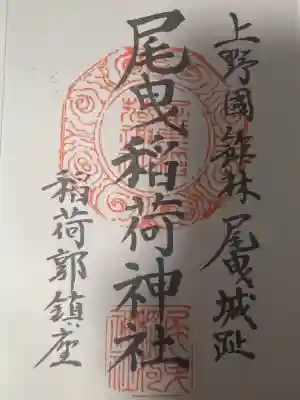 上野國館林 尾曳城趾
尾曳稲荷神社
稲荷郭鎮座